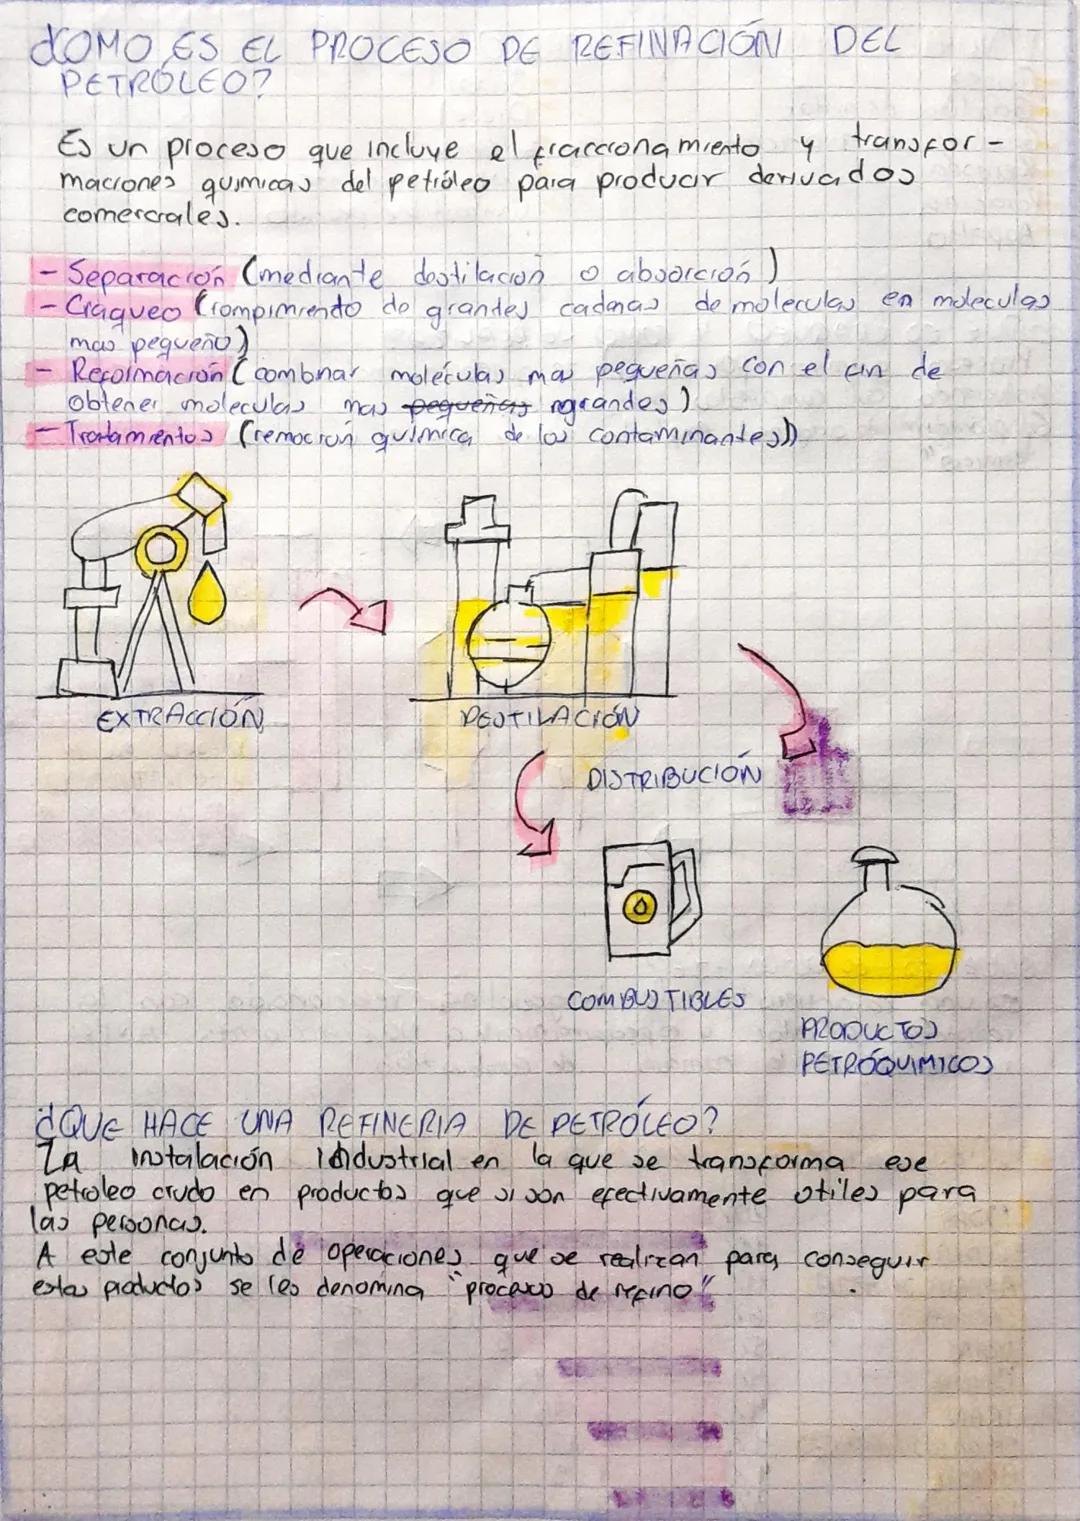 ¿COMO ES EL PROCESO DE REFINACIÓN DEL
PETRÓLEO?
Es un proceso que incluye el fraccionamiento y transfor-
maciones quimicas del petróleo para producir derivados
comerciales.
- Separación (mediante destilacion o absorción)
- Craqueo (rompimiento de grandes cadenas de moleculas en moleculas
mas pequeño)
- Reformación (combnar moléculas mas pequeñas con el fin de
obtener moleculas mas pequeñas grandes)
- Tratamientos (remoción química de los contaminantes)
EXTRACCIÓN
DESTILACIÓN
DISTRIBUCIÓN
COMBUSTIBLES
PRODUCTOS
PETRÓQUIMICOS
¿QUE HACE UNA REFINERIA DE PETRÓLEO?
La instalación industrial en la que se transforma ese
petroleo crudo en productos que si son efectivamente utiles para
las personas.
A este conjunto de operaciones que se realizan para conseguir
estos productos se les denomina "procesos de refino"